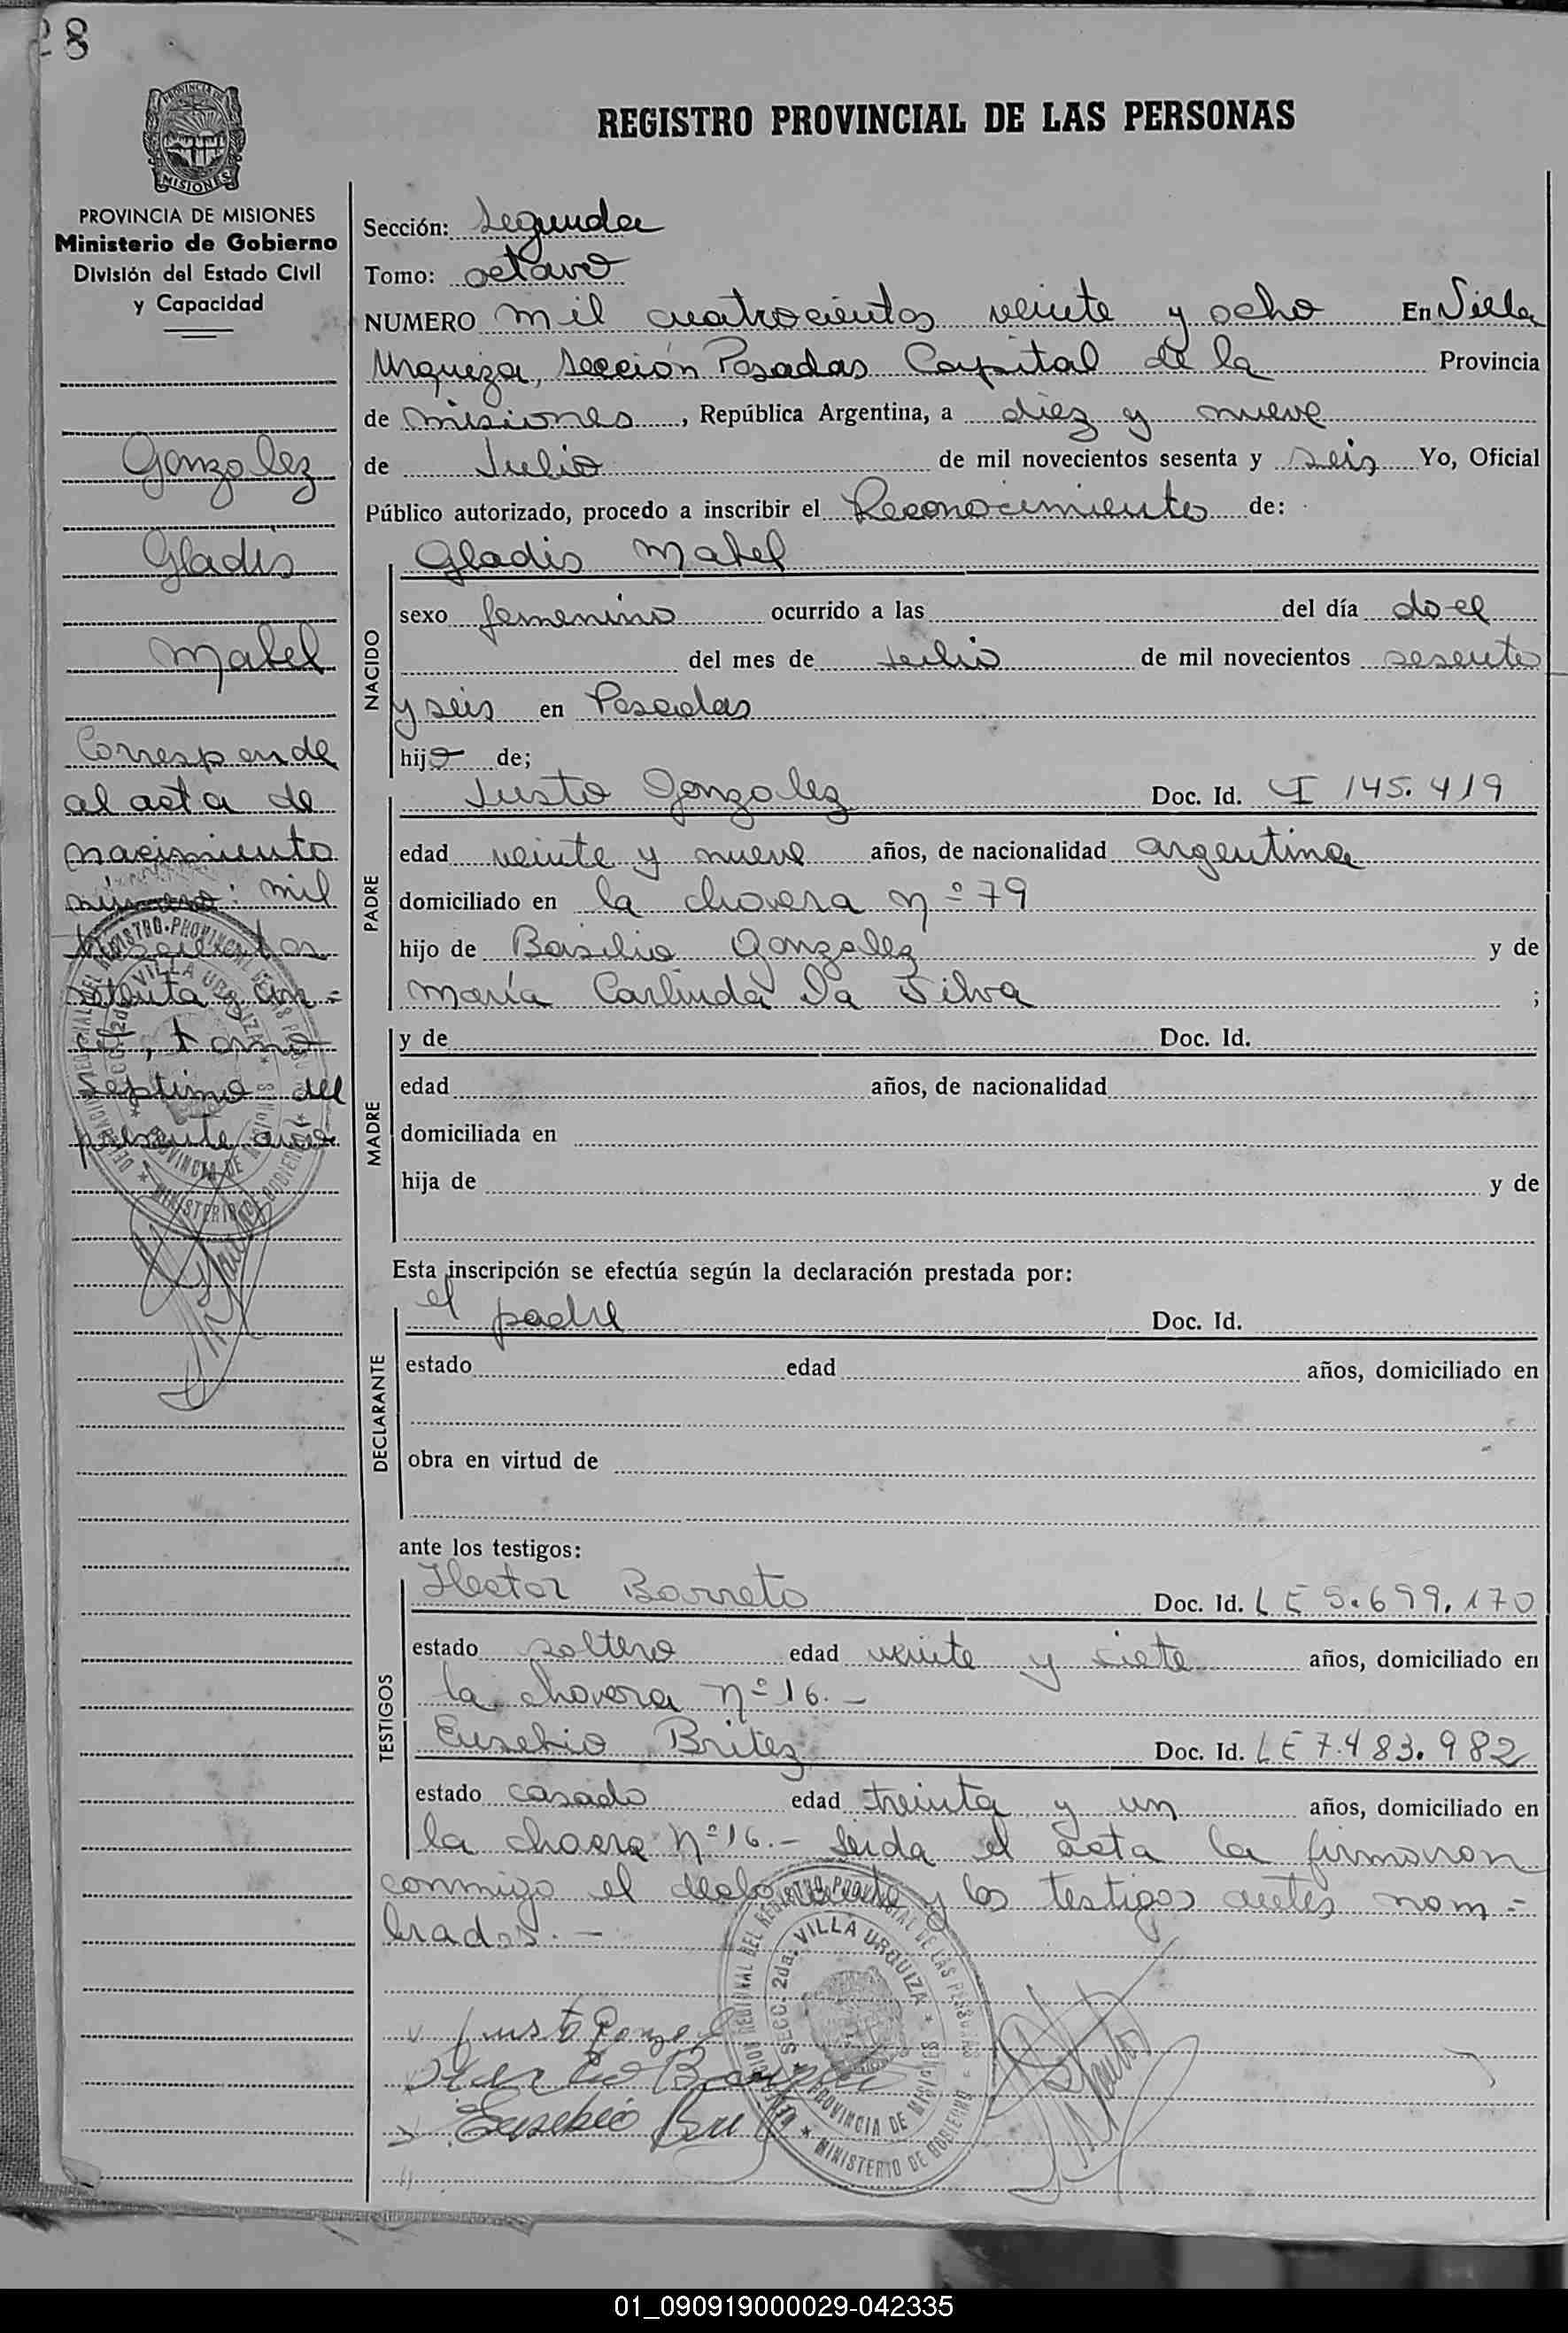 28
PROVINCIA DE
MISIONES
REGISTRO PROVINCIAL DE LAS PERSONAS
PROVINCIA DE MISIONES
Ministerio de Gobierno
División del Estado Civil
y Capacidad
Gonzalez
Gladis
Mabel
Corresponde
al acta de
nacimiento
número: mil
setenta y un =
tomo
septimo del
presente año
Sección: Segunda
Tomo: octavo
NUMERO mil cuatrocientos veinte y ocho En Villa
Urquiza, Sección Posadas Capital de la Provincia
de misiones, República Argentina, a diez y nueve
de Julio de mil novecientos sesenta y seis Yo, Oficial
Público autorizado, procedo a inscribir el Reconocimiento de:
NACIDO
Gladis Mabel
sexo femenino ocurrido a las del día doce
del mes de Julio de mil novecientos sesenta
y seis en Posadas
hijo de;
PADRE
Justo Gonzalez Doc. Id. CI 145.419
edad veinte y nueve años, de nacionalidad argentina
domiciliado en la chacra nº 79
hijo de Basilio Gonzalez y de
María Carlinda Da Silva ;
MADRE
y de Doc. Id.
edad años, de nacionalidad
domiciliada en
hija de y de
Esta inscripción se efectúa según la declaración prestada por:
DECLARANTE
el padre Doc. Id.
estado edad años, domiciliado en
obra en virtud de
ante los testigos:
TESTIGOS
Hector Barreto Doc. Id. LE 5.699.170
estado soltero edad veinte y siete años, domiciliado en
la chacra nº 16.-
Eusebio Britez Doc. Id. LE 7.483.982
estado casado edad treinta y un años, domiciliado en
la chacra nº 16.- Leida el acta la firmaron
conmigo el declarante y los testigos antes nom=
brados.-
Justo Gonzal
Eusebio Bri
DELEGACION REGIONAL DEL REGISTRO PROVINCIAL DE LAS PERSONAS
SECC. 2da. VILLA URQUIZA
PROVINCIA DE MISIONES
MINISTERIO DE GOBIERNO
01_090919000029-042335